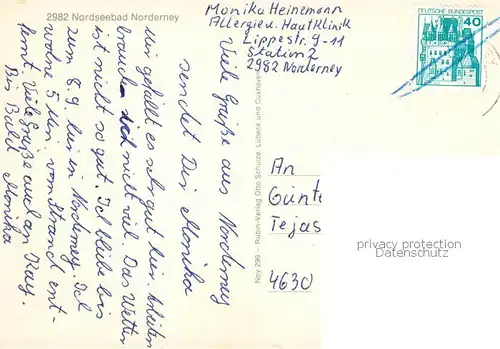 2982 Nordseebad Norderney
Monika Heinemann
Allergieu. Hautklinik
Lippestr. 9-11
Station 2
2982 Norderney
DEUTSCHE BUNDESPOST
40
Viele Grüße aus Norderney
sendet Dir Monika
Mir gefällt es sehr gut hier. Arbeiten
brauch ich nicht viel. Das Wetter
ist nicht so gut. Ich bleibe bis
zum 8.9. hier in Norderney. Ich
wohne 5 Min. vom Strand ent-
fernt. Viele Grüße auch an Kay.
Bis Bald Monika
Ney 299 - Rubin-Verlag Otto Schulze, Lübeck und Cuxhaven
An
Günte
Tejas
4630
privacy protection
Datenschutz